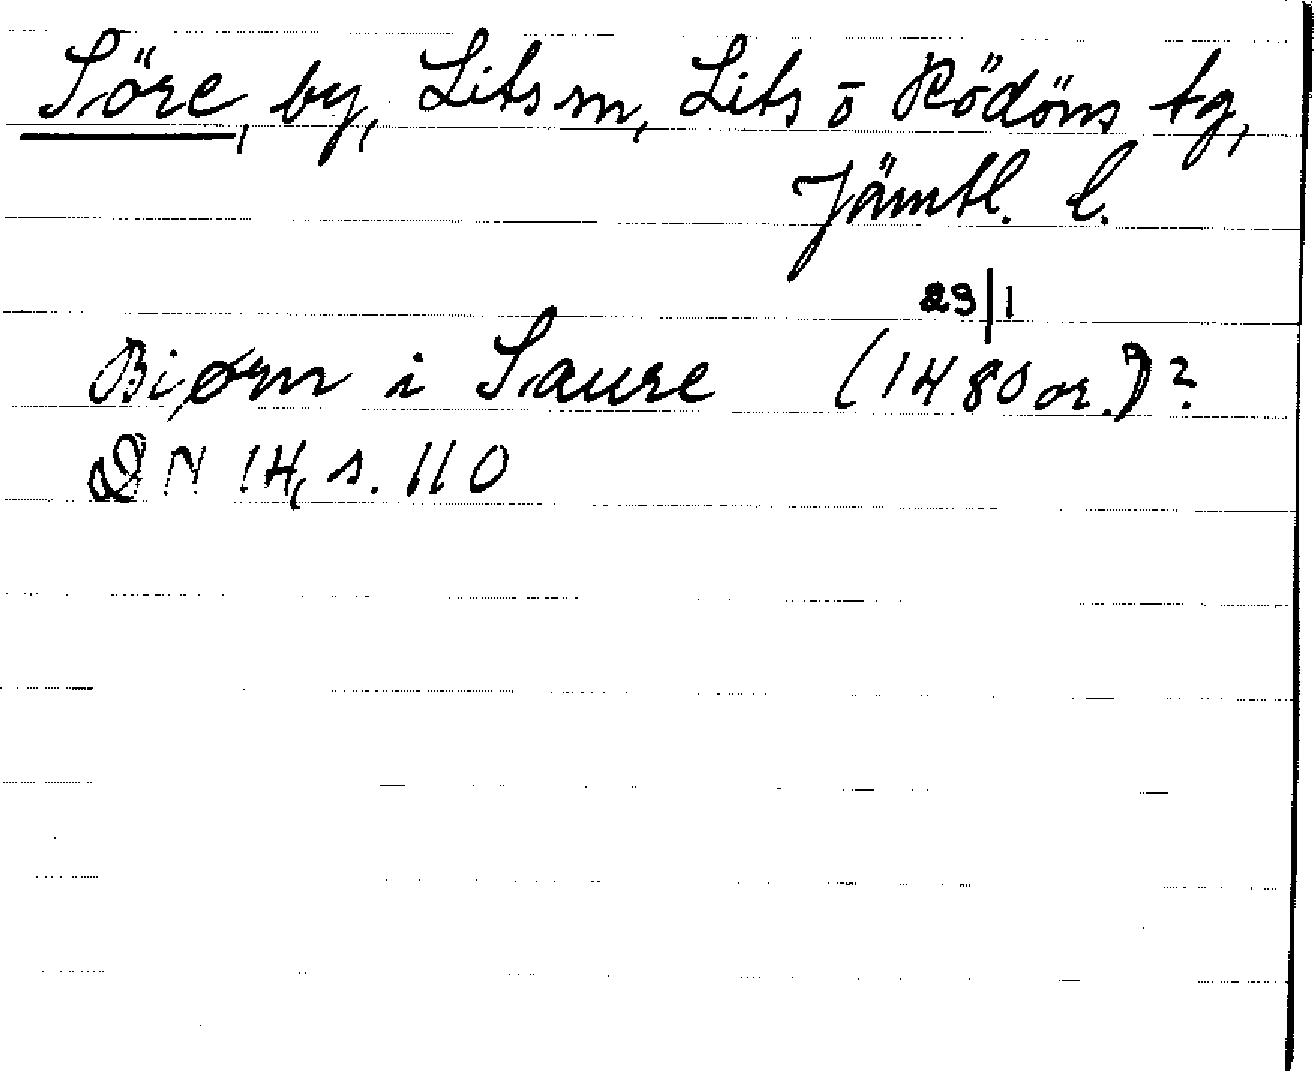 Söre, by, Lits sn, Lits ō Rödöns tg,
Jämtl. l.
23/1
Biørn i Saure (1480 or.)?
DN 14, s. 110